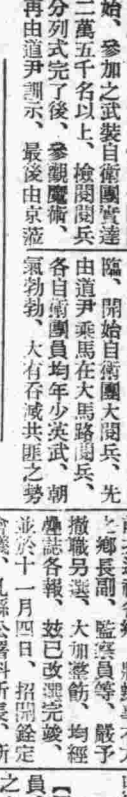 始、參加之武裝自衛團實達
二萬五千名以上、檢閱閱兵
分列式完了後、參觀魔術、
再由道尹訓示、最後由京蒞
臨、開始自衛團大閱兵、先
由道尹乘馬在大馬路閱兵、
各自衛團員均年少英武、朝
氣勃勃、大有吞滅共匪之勢
之鄉長副、監察員等、嚴予
撤職另選、大加整飭、均經
疊誌各報、茲已改選完竣、
並於十一月四日、招開銓定